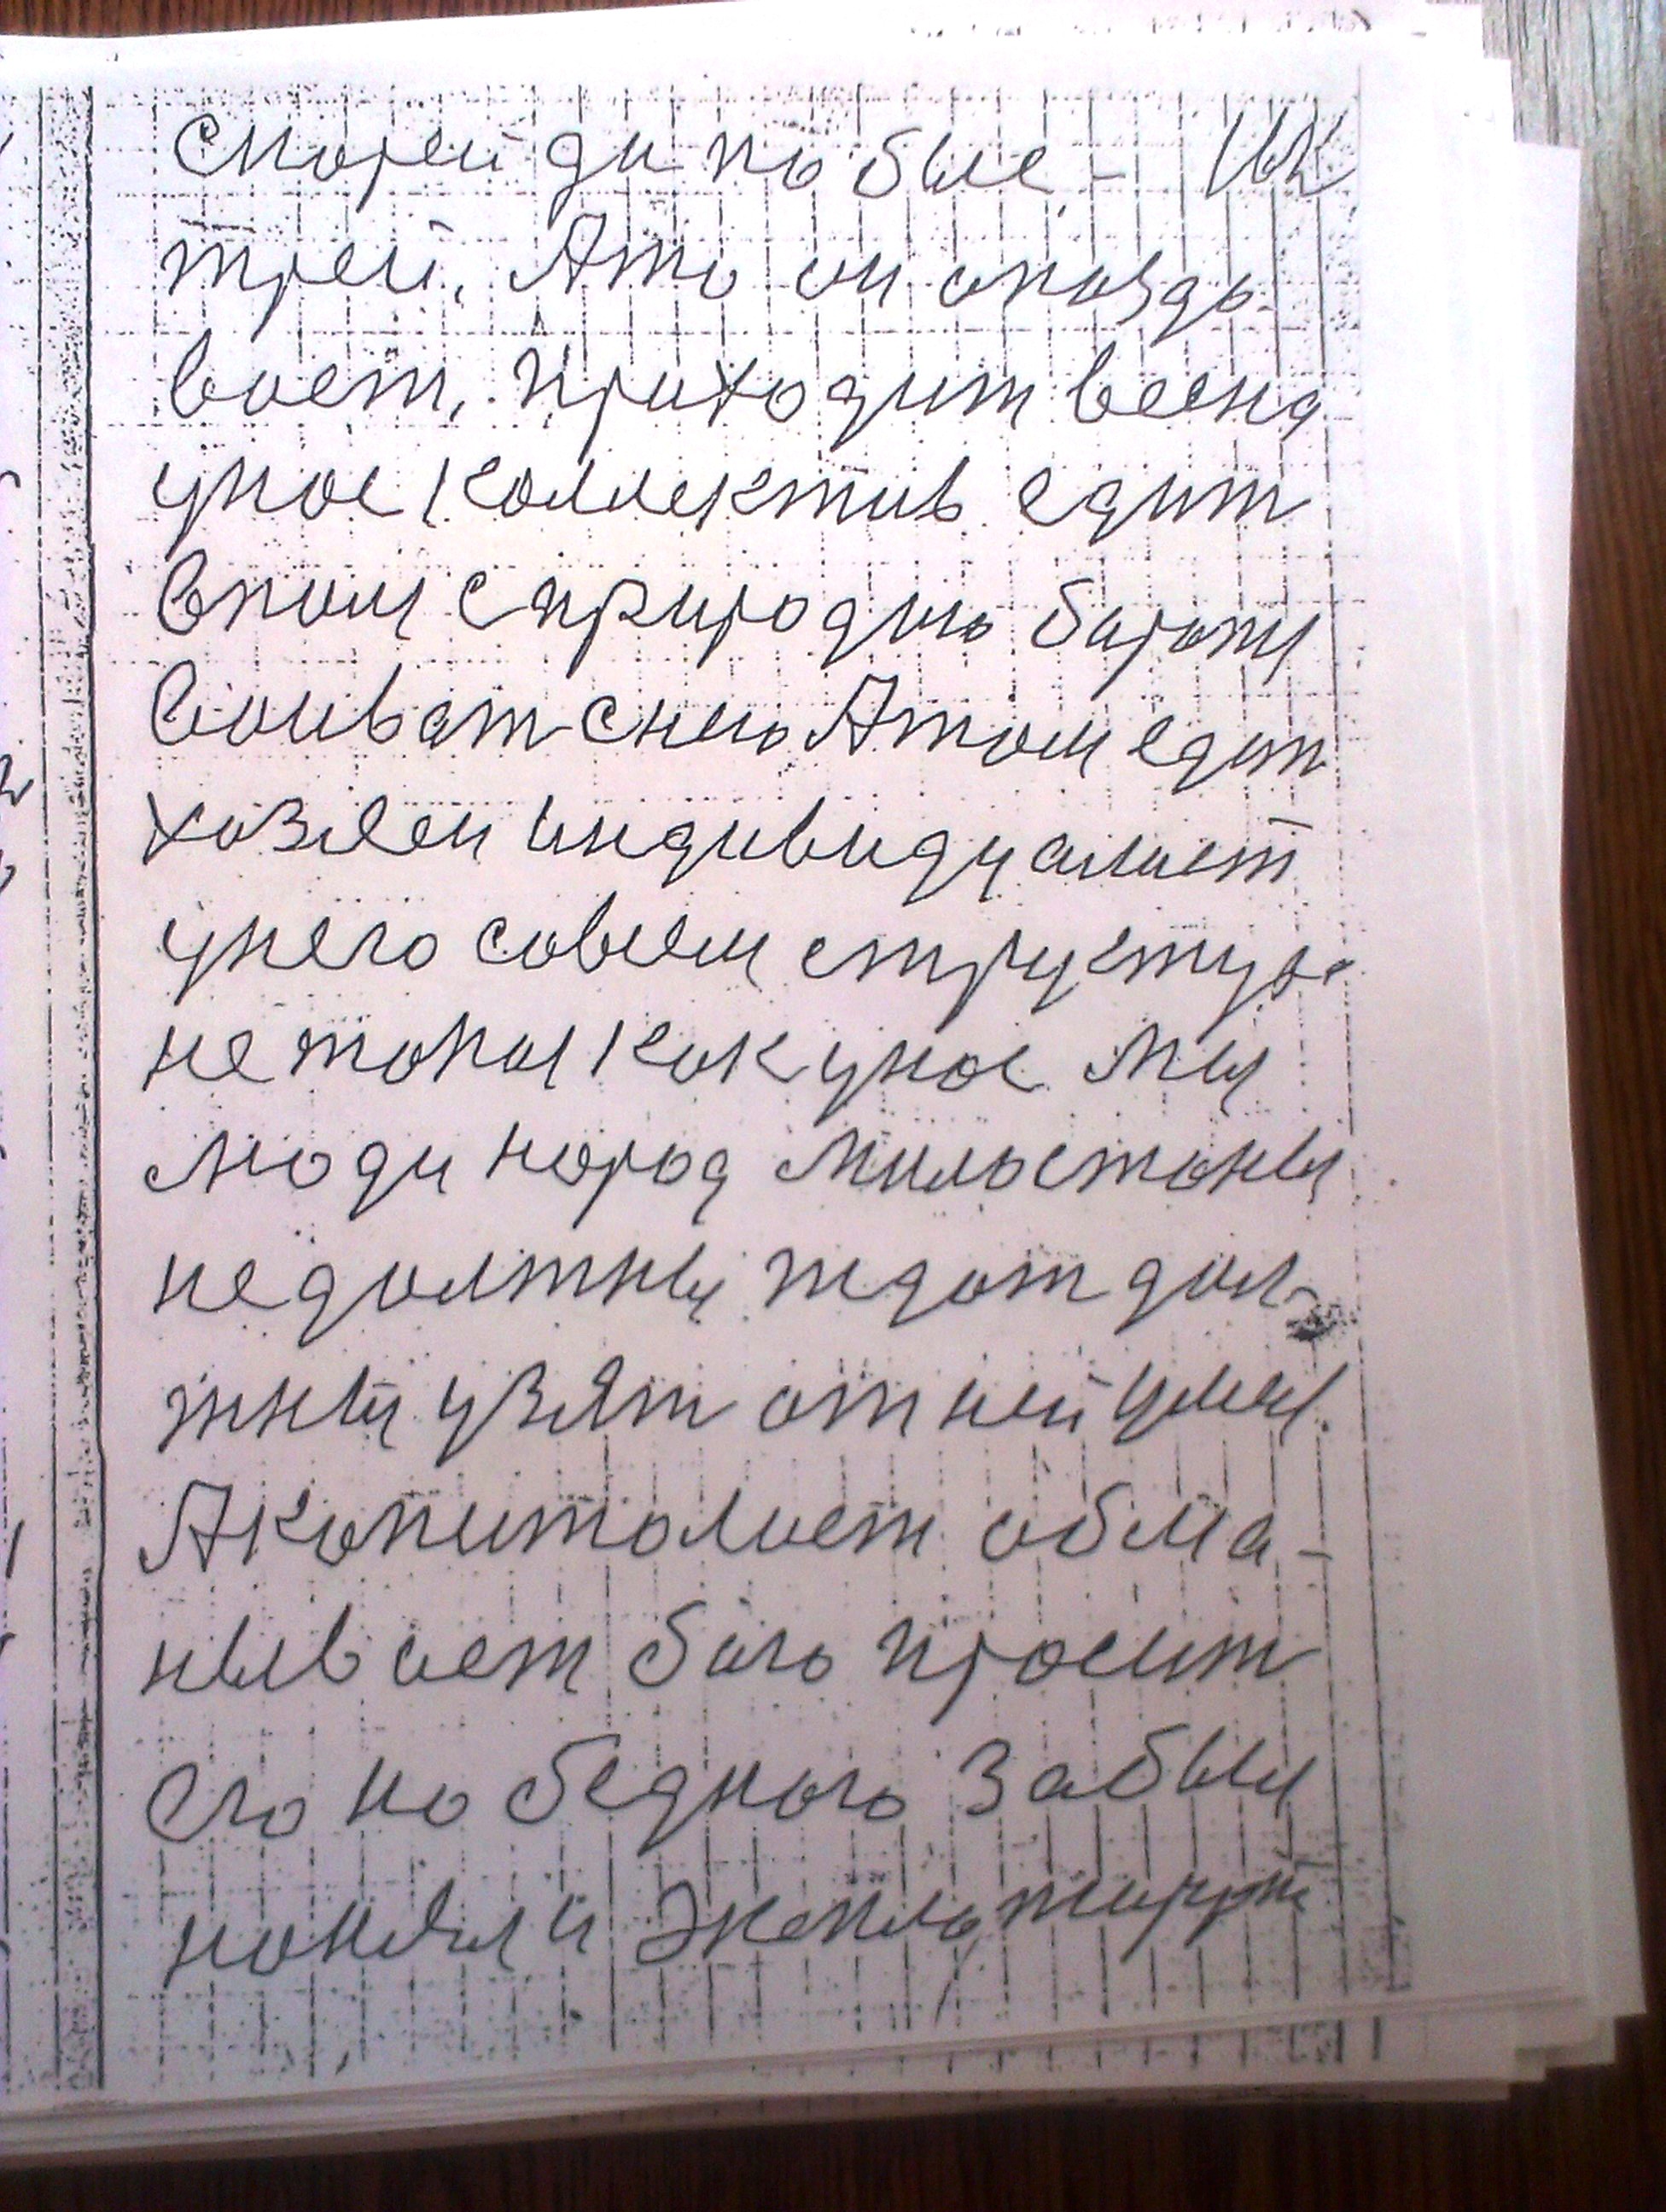 скорей ди по бые -
трей, Ато он опозда
воет, приходит весна
унас коллектив едит
вполи с природаю бироти
воиват снею Атом едит
хозяен индивидуалист
унего совсем структура
не такая как унас Мы
люди народ Милостины
не должны ждат дол-
жны узят от ней умея.
А копиталист обма-
ныв оет бого просит
его но бедного забыл
нонялл и эксплотирует